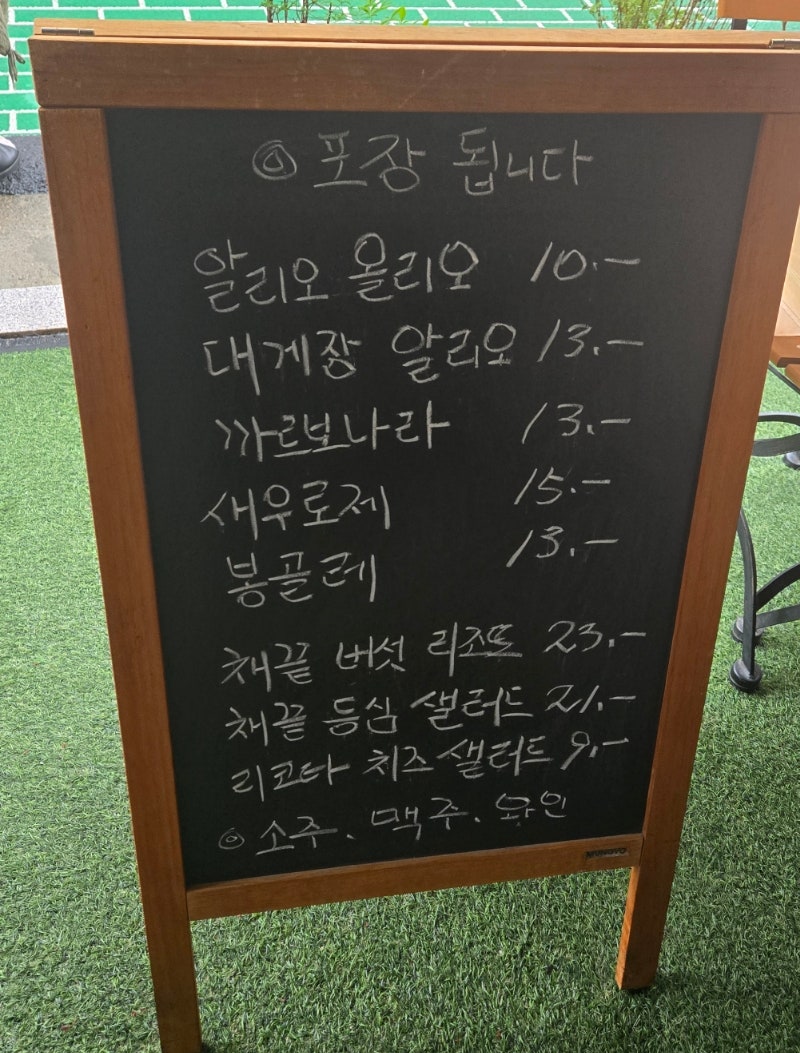 ◎ 포장 됩니다
알리오 올리오 10.-
대게장 알리오 13.-
까르보나라 13.-
새우로제 15.-
봉골레 13.-
채끝 버섯 리조또 23.-
채끝 등심 샐러드 21.-
리코타 치즈 샐러드 9.-
◎ 소주. 맥주. 와인